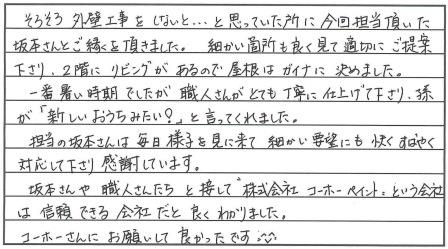 そろそろ外壁工事をしないと…と思っていた所に今回担当頂いた
坂本さんとご縁を頂きました。細かい箇所も良く見て適切にご提案
下さり、2階にリビングがあるので屋根はガイナに決めました。
一番暑い時期でしたが職人さんがとても丁寧に仕上げて下さり、孫
が「新しいおうちみたい?」と言ってくれました。
担当の坂本さんは毎日様子を見に来て細かい要望にも快くすばやく
対応して下さり感謝しています。
坂本さんや職人さんたちと接して"株式会社コーホーペイント"という会社
は信頼できる会社だと良くわかりました。
コーホーさんにお願いして良かったです